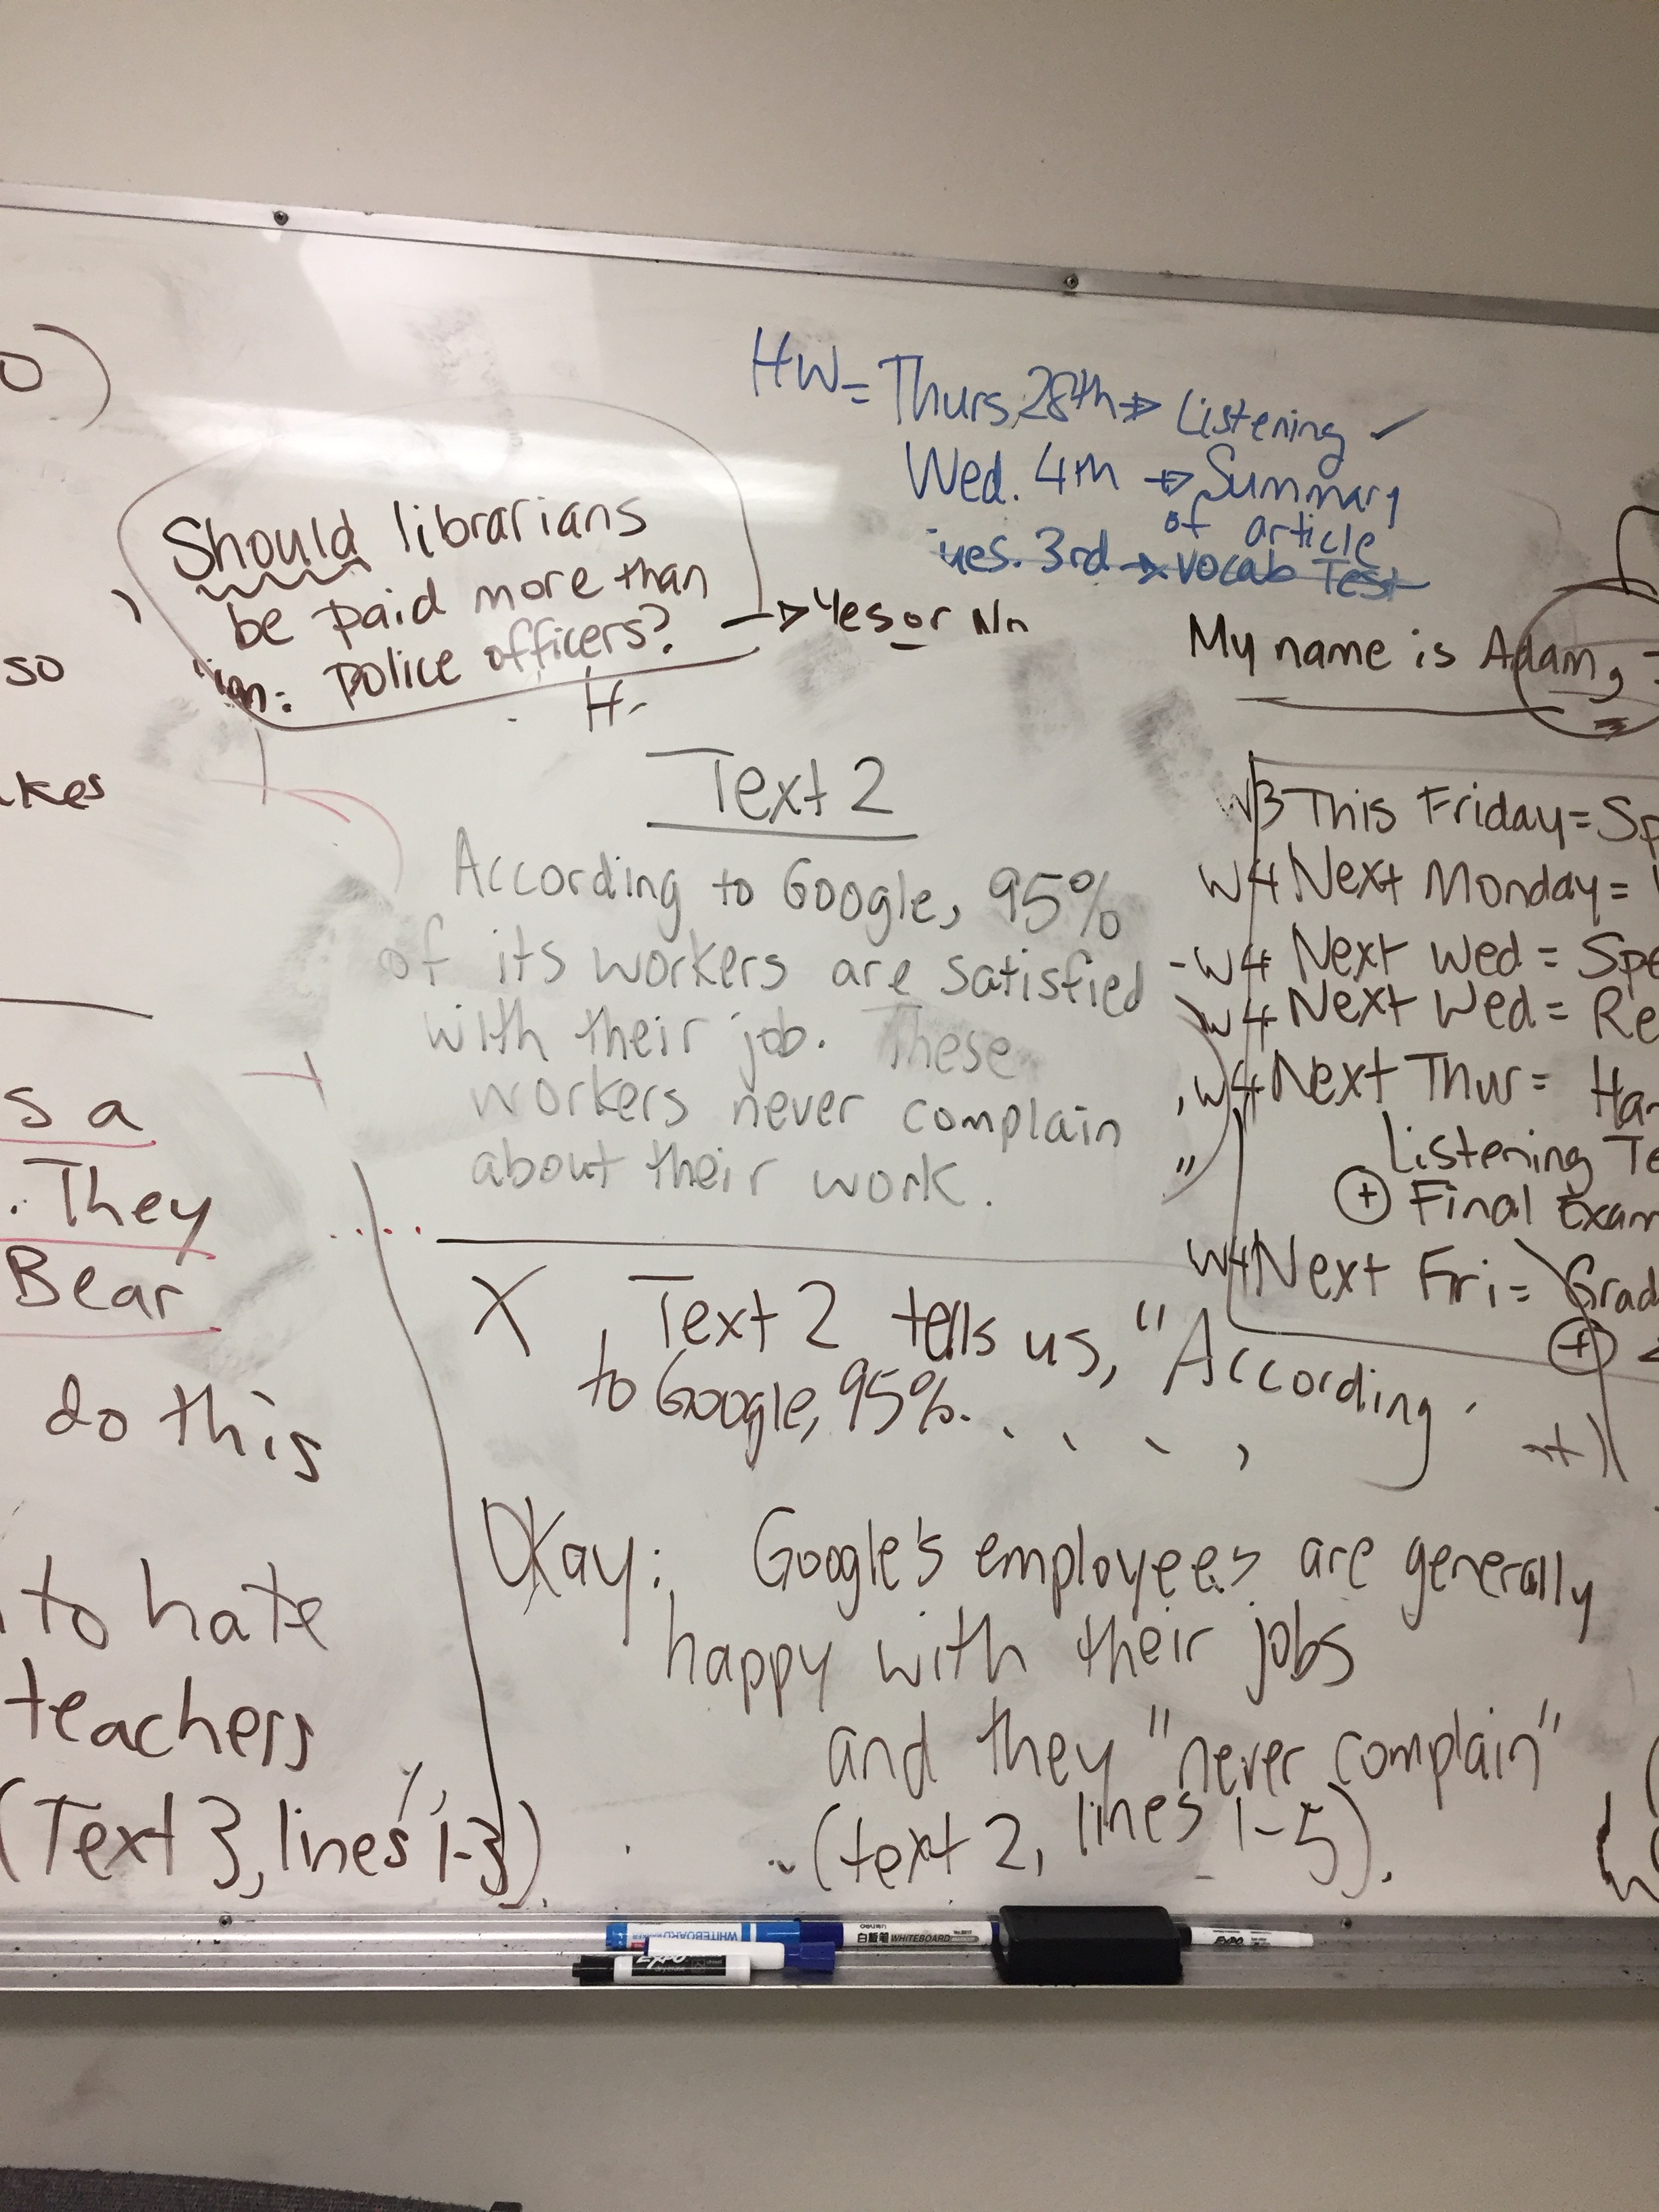 o)
HW= Thurs, 28th → Listening ✓
Wed. 4th → Summary
of article
ues. 3rd → vocab Test
Should librarians
be paid more than
police officers?
→ Yes or No
My name is Adam,
so
kes
s a
. They
Bear
do this
to hate
teachers
(Text 3, lines 1-3).
Text 2
According to Google, 95%
of its workers are satisfied
with their job. These
workers never complain
about their work.
W3 This Friday= Sp
W4 Next Monday=
W4 Next Wed = Spe
W4 Next Wed = Re
W4 Next Thur= Ha
Listening Te
+ Final Exam
W4 Next Fri= Grad
+
X , Text 2 tells us, "According
to Google, 95%. . . . ,
Okay: Google's employees are generally
happy with their jobs
and they "never complain"
(text 2, lines 1-5).
WHITEBOARD
EXPO
白板笔 WHITEBOARD
EXPO